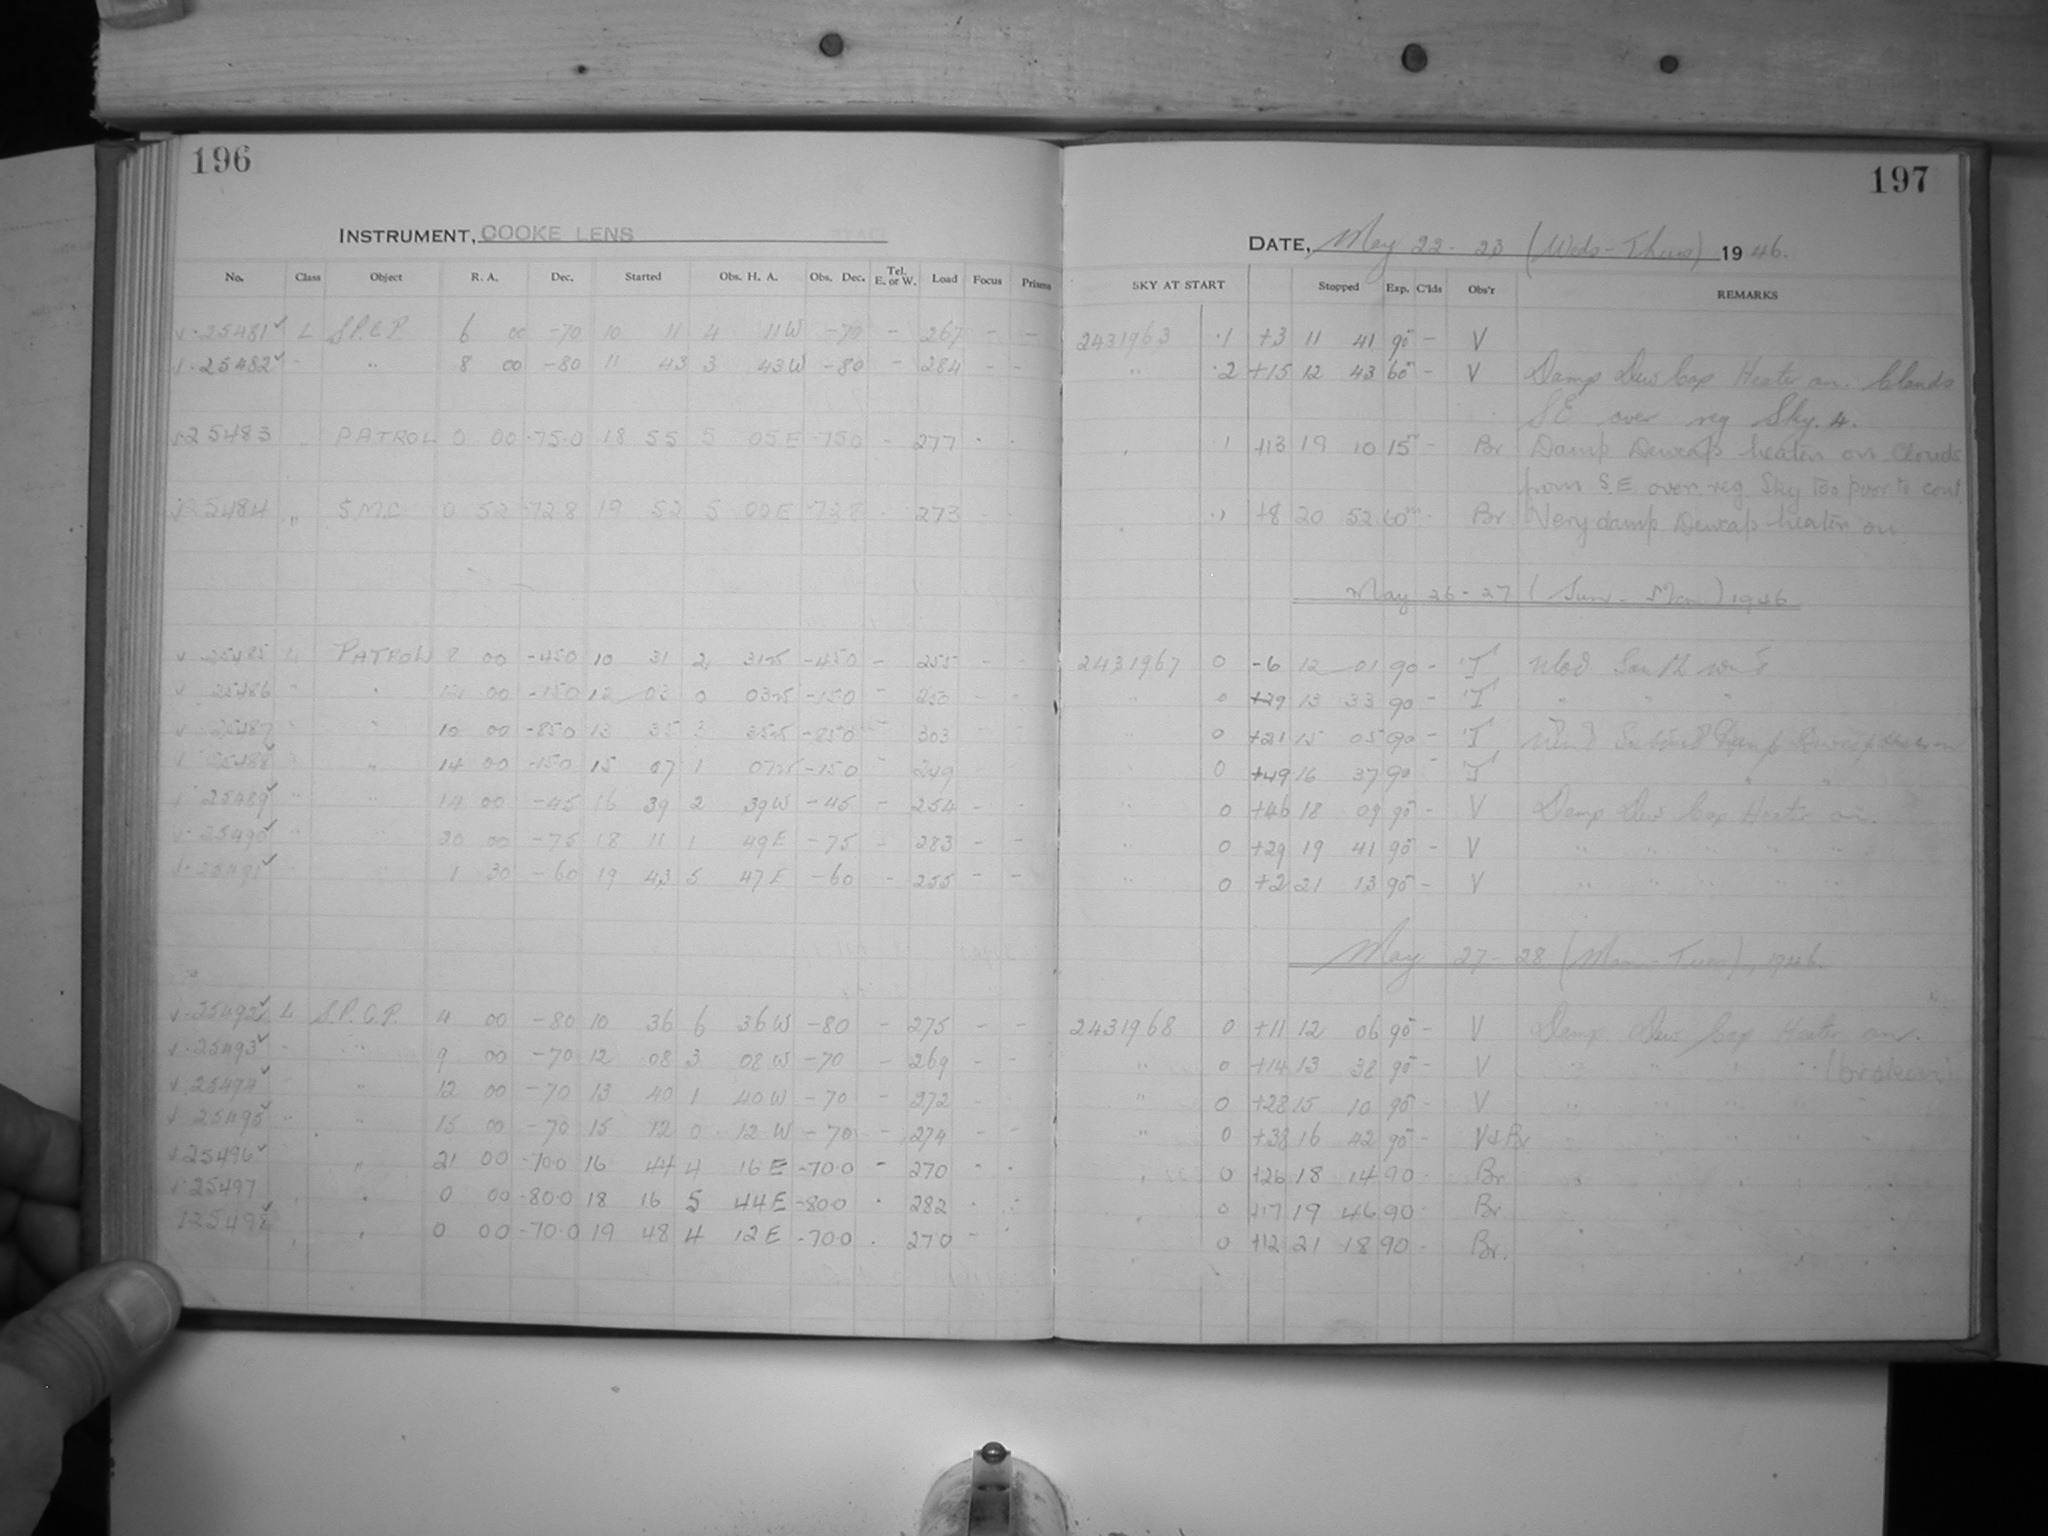 196
197
INSTRUMENT, COOKE LENS
DATE, May 22-23 (Weds-Thurs) 1946.
No. Class Object R. A. Dec. Started Obs. H. A. Obs. Dec. Tel. E. or W. Load Focus Prisms SKY AT START Stopped Exp. C'lds Obs'r REMARKS
25481 L S.P.C.P. 6 00 -70 10 11 4 11W -70 - 267 - - 2431963 .1 +3 11 41 90 - V
25482 " " 8 00 -80 11 43 3 43W -80 - 284 - - " .2 +15 12 43 60 - V Damp Dew Cap Heater on. Clouds
SE over reg Sky. 4.
25483 " PATROL 0 00 -75.0 18 55 5 05E -75.0 - 277 - - 1 +13 19 10 15 - Br Damp Dewcap heater on Clouds
from S.E over reg Sky too poor to cont
25484 " S.M.C 0 52 -72.8 19 52 5 00E -72.8 273 - +8 20 52 60 - Br Very damp Dewcap heater on
May 26-27 (Sun-Mon) 1946
25485 L PATROL 8 00 -45.0 10 31 2 -45.0 - 255 - - 2431967 0 -6 12 01 90 - T Mod South wind
25486 " " 00 -15.0 12 03 0 -15.0 - 250 - - " 0 +29 13 33 90 - T " " "
25487 " " 10 00 -85.0 13 35 3 -85.0 - 303 - - " 0 +21 15 05 90 - T Wind Damp
25488 " " 14 00 -15.0 15 07 1 -15.0 - 249 - - " 0 +49 16 37 90 - T " "
25489 " " 14 00 -45 16 39 2 39W -45 - 254 - - " 0 +46 18 09 90 - V Damp Dew Cap Heater on.
25490 " " 20 00 -75 18 11 1 49E -75 - 283 - - " 0 +29 19 41 90 - V " " " "
25491 " " 1 30 -60 19 43 5 47E -60 - 255 - - " 0 +2 21 13 90 - V " " " "
May 27-28 (Mon-Tues), 1946.
25492 L S.P.C.P. 4 00 -80 10 36 6 36W -80 - 275 - - 2431968 0 +11 12 06 90 - V Damp Dew Cap Heater on.
25493 " " 9 00 -70 12 08 3 08W -70 - 269 - - " 0 +14 13 38 90 - V " " " " (broken)
25494 " " 12 00 -70 13 40 1 40W -70 - 272 - - " 0 +28 15 10 90 - V " " " "
25495 " " 15 00 -70 15 12 0 12W -70 - 274 - - " 0 +38 16 42 90 - V & Br " " " "
25496 " 21 00 -70.0 16 44 4 16E -70.0 - 270 - - 0 +26 18 14 90 - Br
25497 " " 0 00 -80.0 18 16 5 44E -80.0 - 282 - - 0 +17 19 46 90 - Br
25498 " " 0 00 -70.0 19 48 4 12E -70.0 - 270 - - 0 +12 21 18 90 - Br.